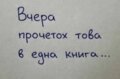 Вчера
прочетох това
в една книга...